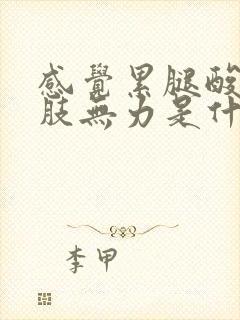 感覺累腿酸
肢無力是什
李甲